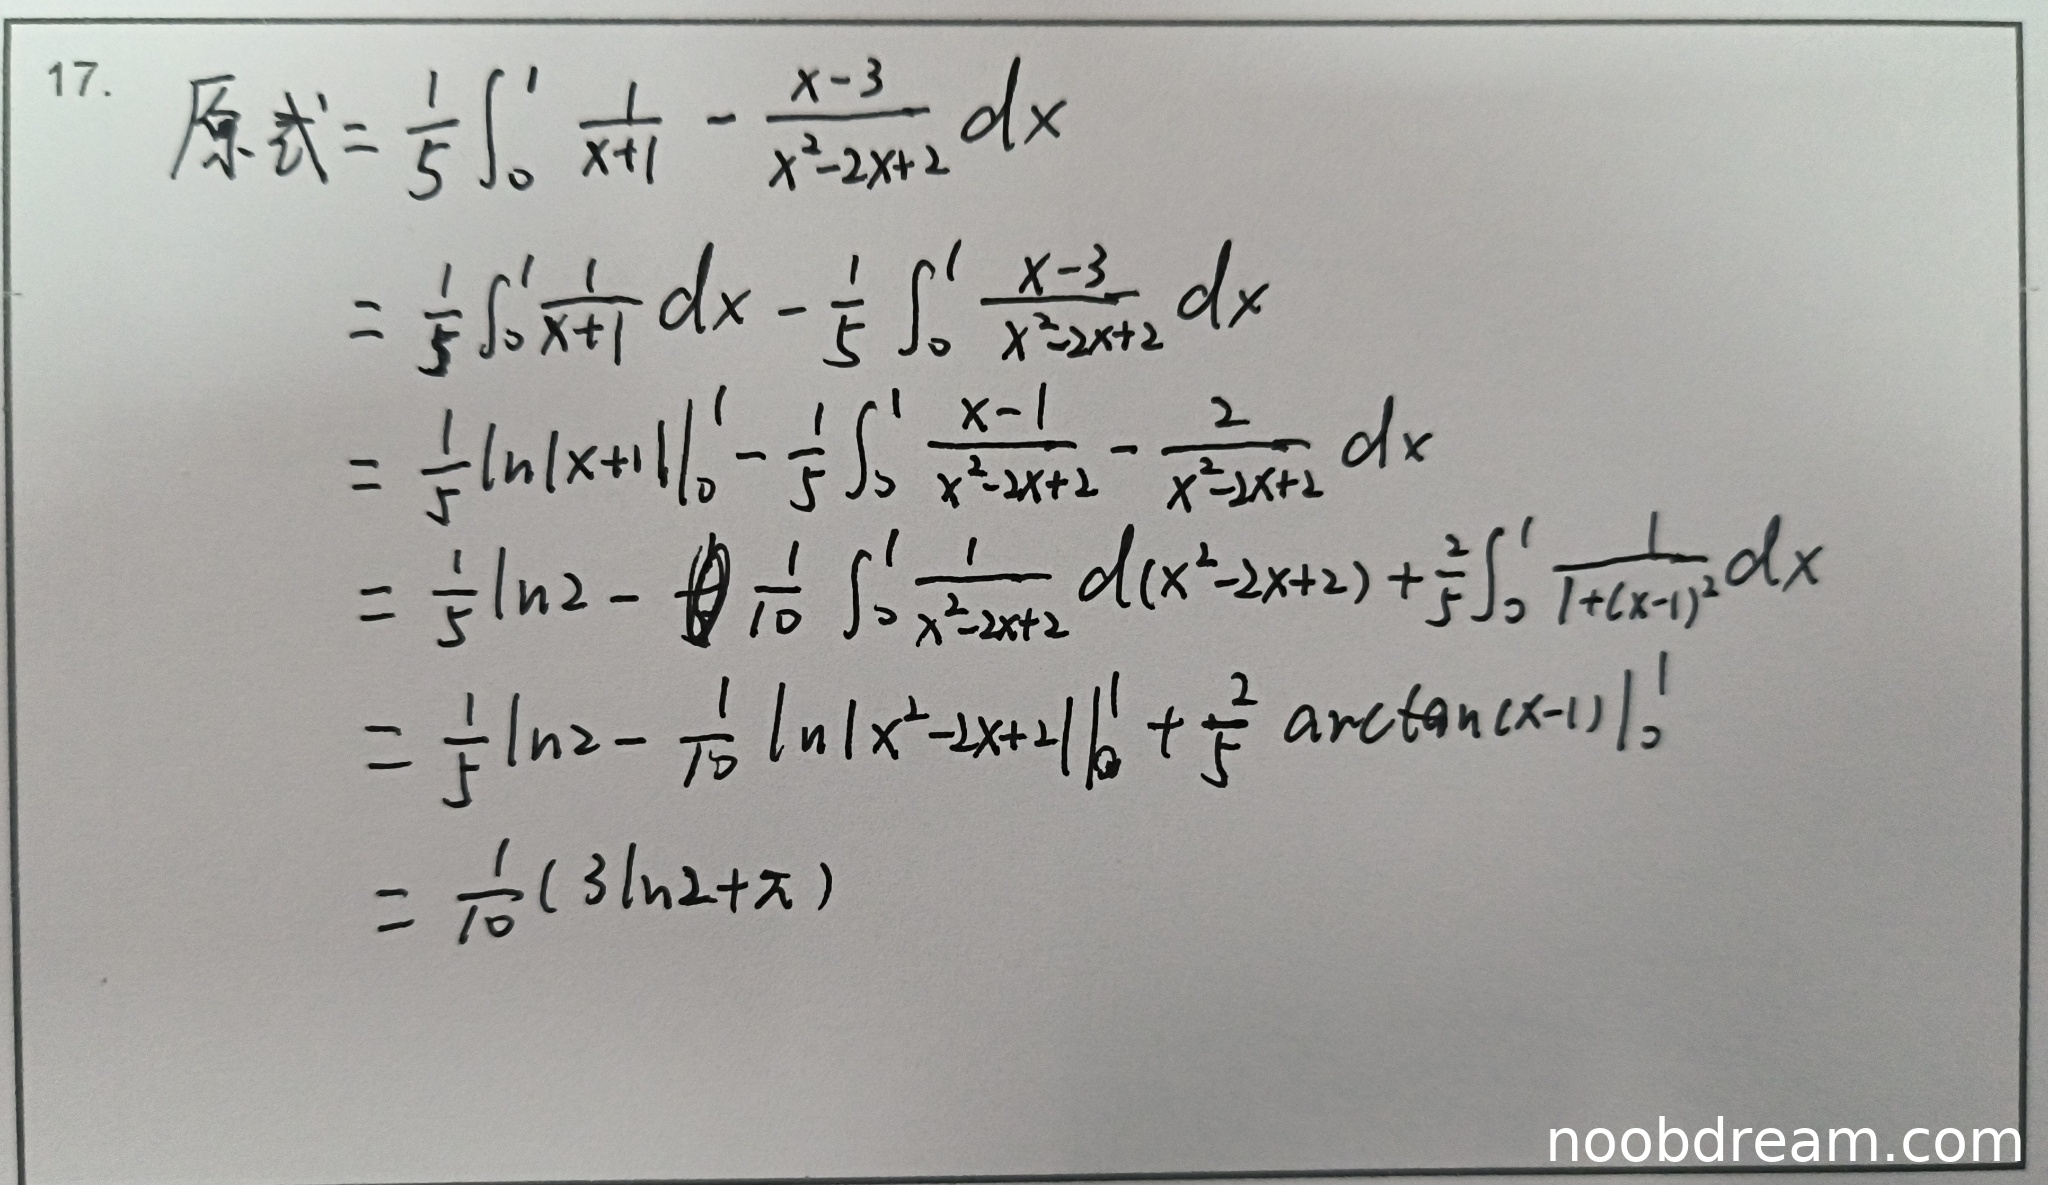 17.
原式 = \frac{1}{5} \int_0^1 \frac{1}{x+1} - \frac{x-3}{x^2-2x+2} dx
= \frac{1}{5} \int_0^1 \frac{1}{x+1} dx - \frac{1}{5} \int_0^1 \frac{x-3}{x^2-2x+2} dx
= \frac{1}{5} ln|x+1| |_0^1 - \frac{1}{5} \int_0^1 \frac{x-1}{x^2-2x+2} - \frac{2}{x^2-2x+2} dx
= \frac{1}{5} ln2 - \frac{1}{10} \int_0^1 \frac{1}{x^2-2x+2} d(x^2-2x+2) + \frac{2}{5} \int_0^1 \frac{1}{1+(x-1)^2} dx
= \frac{1}{5} ln2 - \frac{1}{10} ln|x^2-2x+2| |_0^1 + \frac{2}{5} arctan(x-1) |_0^1
= \frac{1}{10} (3ln2+π)
noobdream.com